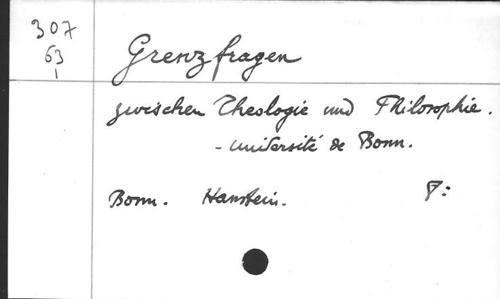 307
63
1
Grenzfragen
zwischen Theologie und Philosophie.
- université de Bonn.
Bonn. Hanstein. P: